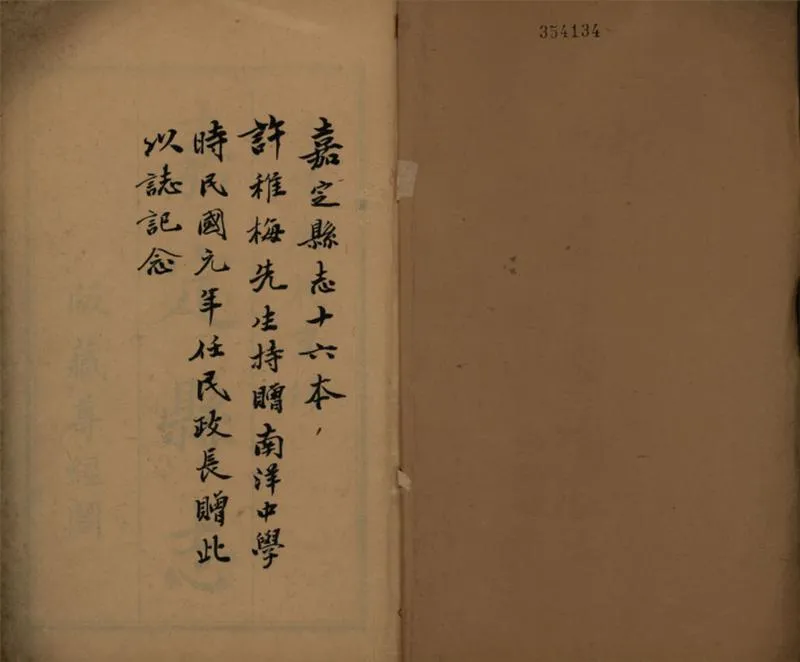 354134
嘉定縣志十六本，
許稚梅先生持贈南洋中學
時民國元年任民政長贈此
以誌記念
版藏尊經閣